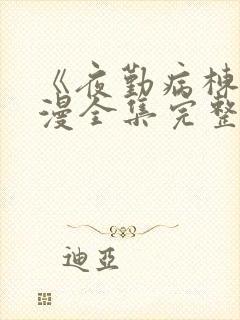 《夜勤病棟
漫全集完整
迪亞